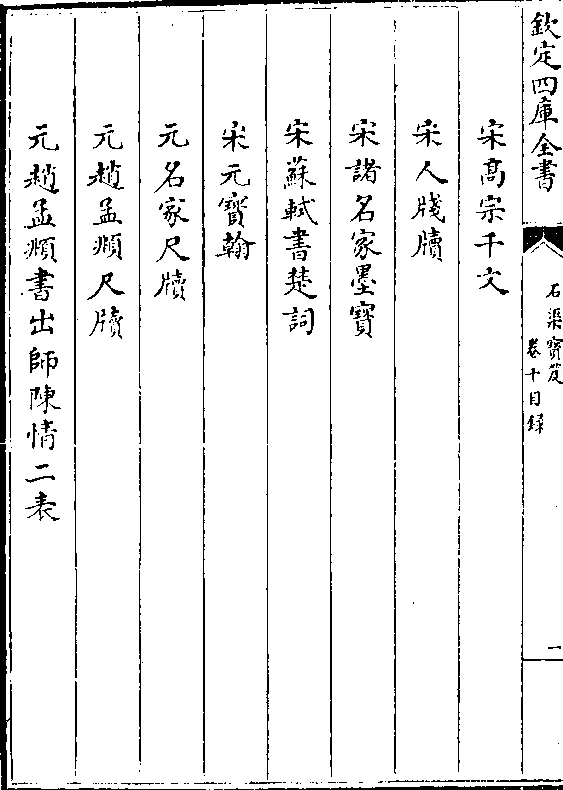 欽定四庫全書
石渠寶笈
卷十目錄
一
宋高宗千文
宋人牋牘
宋諸名家墨寶
宋蘇軾書楚詞
宋元寶翰
元名家尺牘
元趙孟頫尺牘
元趙孟頫書出師陳情二表